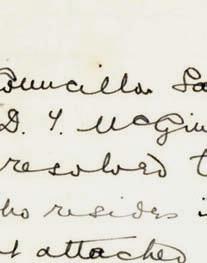 Councillor
D. Y. McGin
resolved t
who resides i
attached